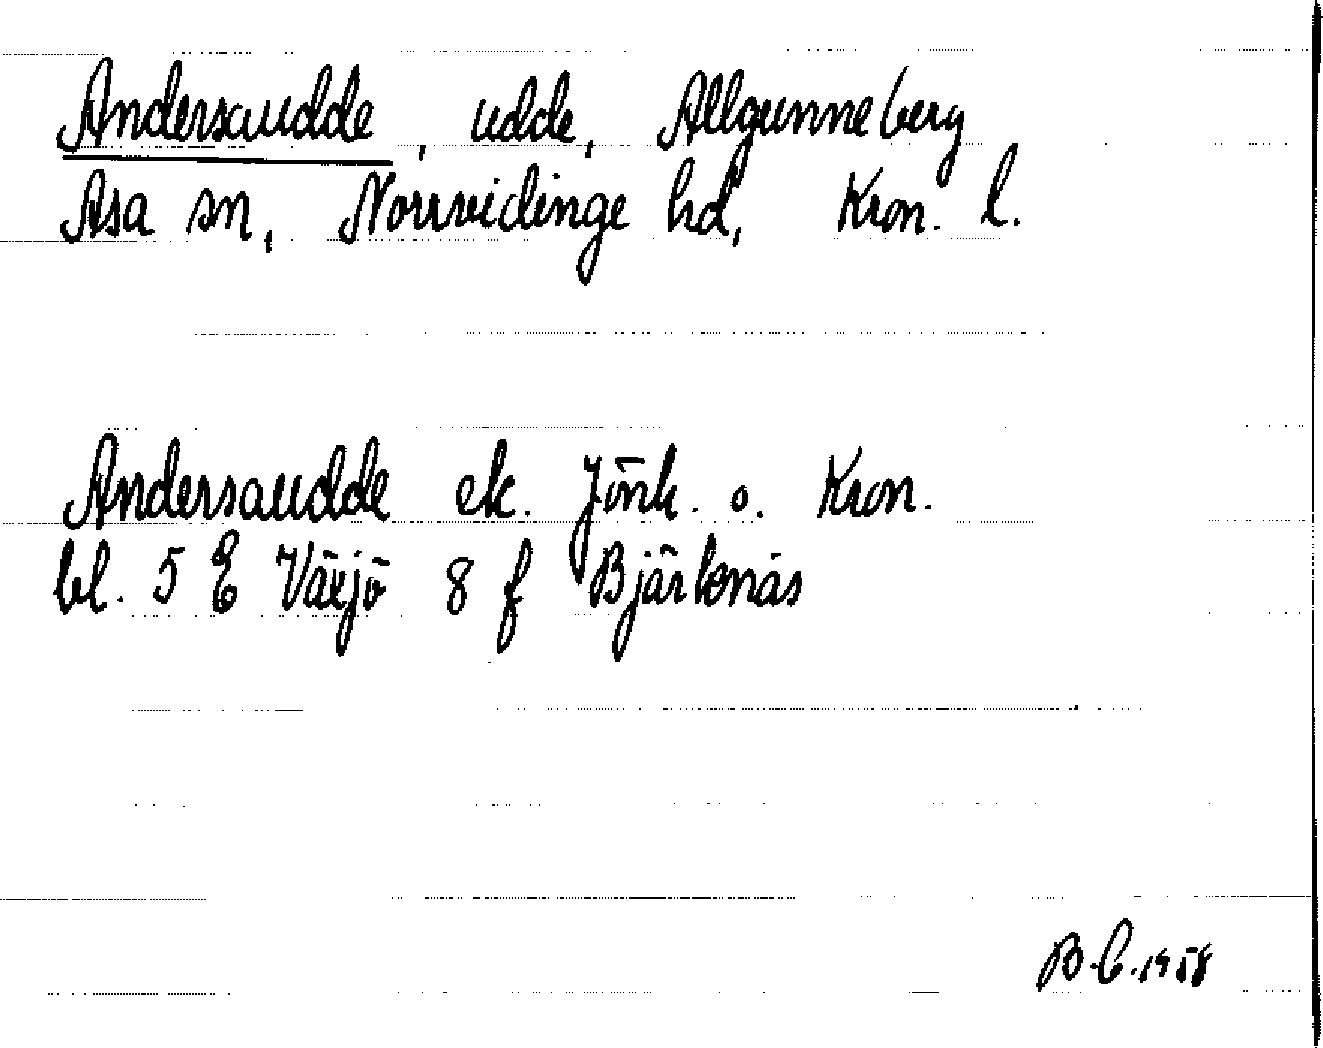 Andersaudde, udde, Allgunneberg
Asa sn, Norrvidinge hd, Kron. l.
Andersaudde ek. Jönk. o. Kron.
bl. 5 E Växjö 8 f Bjärkenäs
B.C. 1958